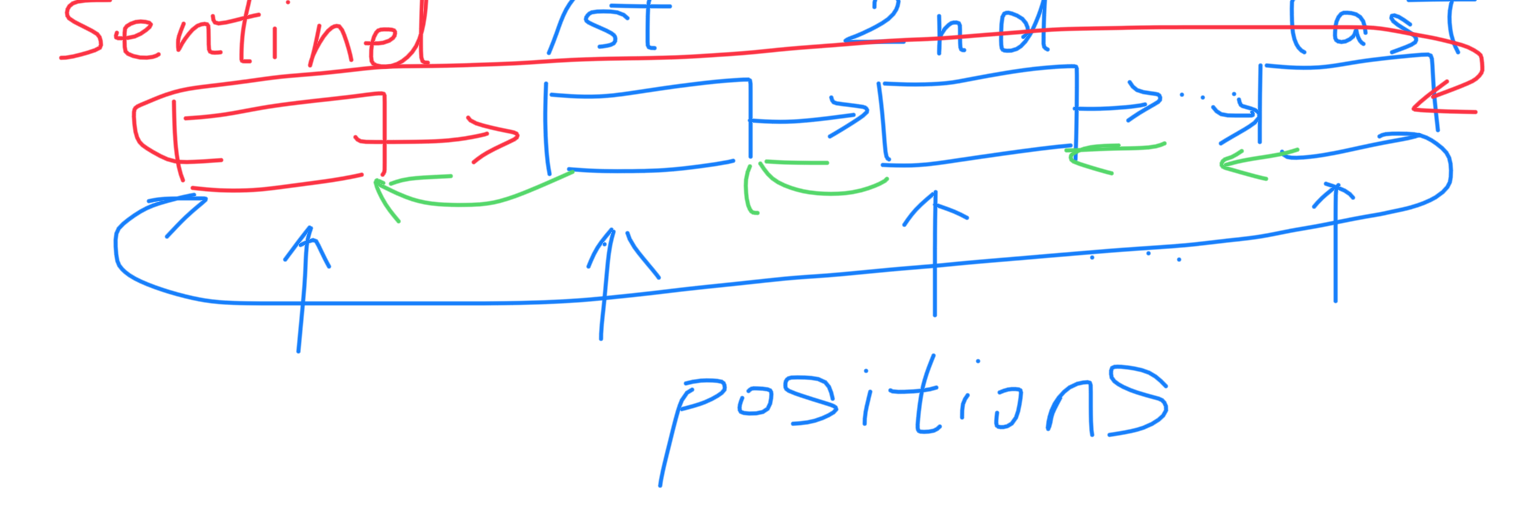 Sentinel 1st 2nd last
positions